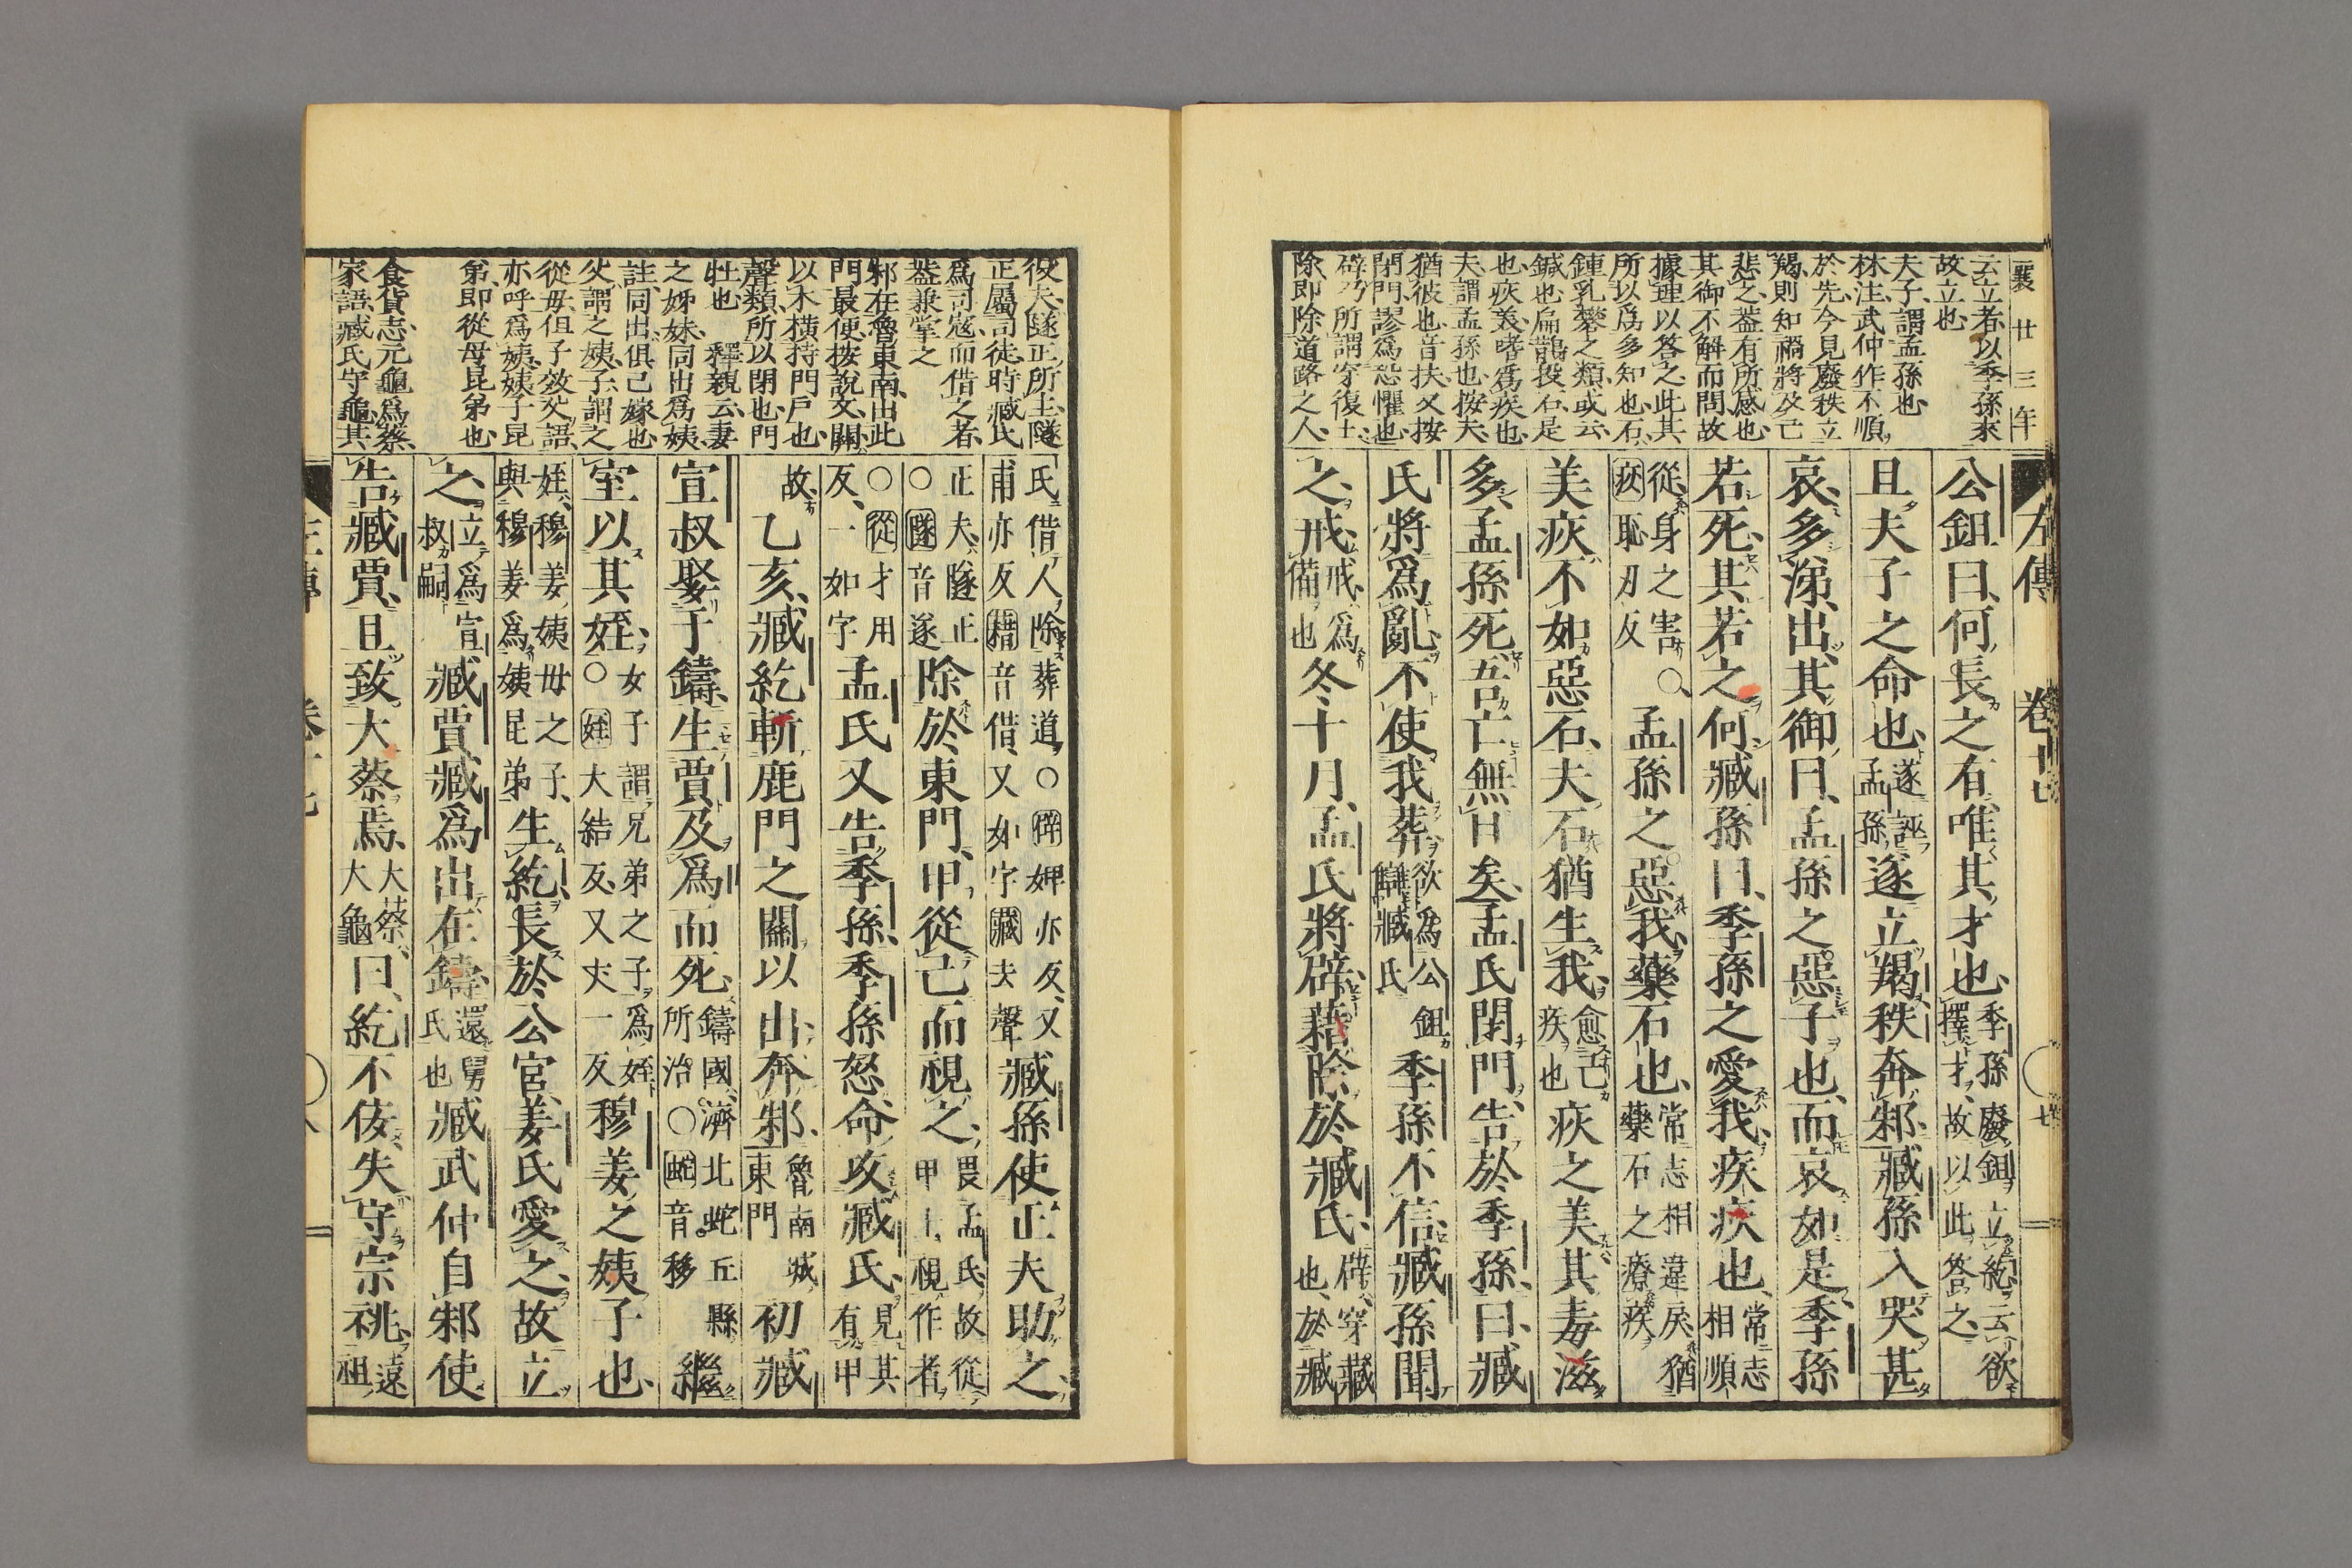 襄廿三年
云立者以季孫來
故立也
夫子謂孟孫也
林注武仲作不順
於先今見廢秩立
羯則知禍將及己
悲之葢有所感也
其御不解而問故
據理以答之此其
所以爲多知也石
鍾乳礬之類或云
鍼也扁鵲投石是
也疢義嗜爲疾也
夫謂孟孫也按夫
猶彼也音扶又按
閉門謬爲恐懼也
辟乃所謂穿復土
除即除道路之人
左傳 卷十七 七
公鉏曰何長之有唯其才也季孫廢鉏立紇云欲擇才故以此答之
且夫子之命也遂誣孟孫遂立羯秩奔邾臧孫入哭甚
哀多涕出其御曰孟孫之惡子也而哀如是季孫
若死其若之何臧孫曰季孫之愛我疾疢也常志相順
從身之害○疢恥刃反孟孫之惡我藥石也常志相違戾猶藥石之療疾
美疢不如惡石夫石猶生我愈己疾也疢之美其毒滋
多孟孫死吾亡無日矣孟氏閉門告於季孫曰臧
氏將爲亂不使我葬欲爲公鉏讎臧氏季孫不信臧孫聞
之戒戒爲備也冬十月孟氏將辟藉除於臧氏辟穿藏也於臧
役夫隧正所主隧
正屬司徒時臧氏
爲司寇而借之者
葢兼掌之
邾在魯東南出此
門最便按說文關
以木橫持門戶也
聲類所以閉也門
牡也 釋親云妻
之姊妹同出爲姨
註同出俱已嫁也
父謂之姨子謂之
從毋但子效父語
亦呼爲姨姨子昆
弟即從母昆弟也
食貨志元龜爲蔡
家語臧氏守龜其
氏借人除葬道○辟婢亦反又甫亦反藉音借又如字藏夫聲臧孫使正夫助之
正夫隧正○隧音遂除於東門甲從己而視之畏孟氏故從甲士視作者
○從才用反一如字孟氏又告季孫季孫怒命攻臧氏見其有甲
故乙亥臧紇斬鹿門之關以出奔邾魯南城東門初臧
宣叔娶于鑄生賈及爲而死鑄國濟北蛇丘縣所治○蛇音移繼
室以其姪女子謂兄弟之子爲姪○姪大結反又丈一反穆姜之姨子也
姪穆姜姨母之子與穆姜爲姨昆弟生紇長於公宮姜氏愛之故立
之立爲宣叔嗣臧賈臧爲出在鑄還舅氏也臧武仲自邾使
告臧賈且致大蔡焉大蔡大龜曰紇不佞失守宗祧遠祖